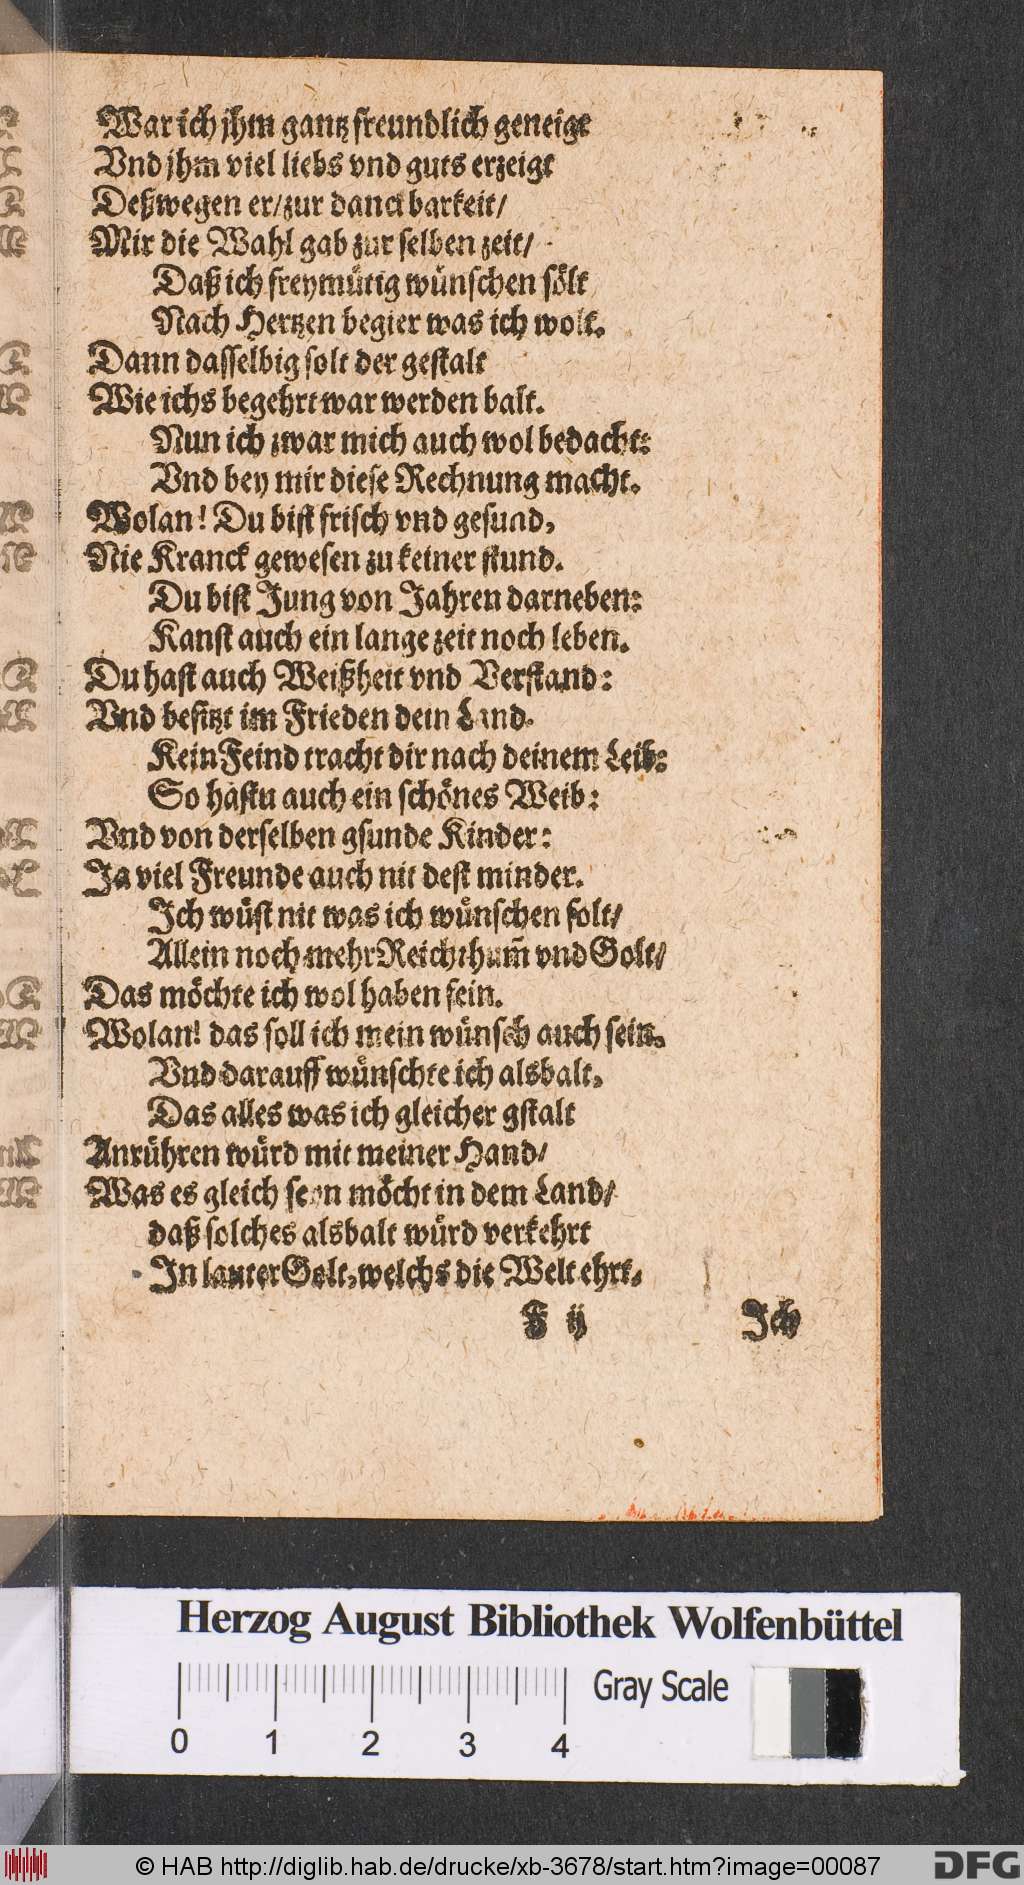 War ich jhm gantz freundlich geneigt
Vnd jhm viel liebs vnd guts erzeigt
Deßwegen er/zur danckbarkeit/
Mir die Wahl gab zur selben zeit/
Daß ich freymütig wünschen sölt
Nach Hertzen begier was ich wolt.
Dann dasselbig solt der gestalt
Wie ichs begehrt war werden balt.
Nun ich zwar mich auch wol bedacht:
Vnd bey mir diese Rechnung macht.
Wolan! Du bist frisch vnd gesund,
Nie Kranck gewesen zu keiner stund.
Du bist Jung von Jahren darneben:
Kanst auch ein lange zeit noch leben.
Du hast auch Weißheit vnd Verstand:
Vnd besitzt im Frieden dein Land.
Kein Feind tracht dir nach deinem Leib:
So hastu auch ein schönes Weib:
Vnd von derselben gsunde Kinder:
Ja viel Freunde auch nit dest minder.
Ich wüst nit was ich wünschen solt/
Allein noch mehr Reichthum̃ vnd Golt/
Das möchte ich wol haben fein.
Wolan! das soll ich mein wünsch auch sein.
Vnd darauff wünschte ich alsbalt,
Das alles was ich gleicher gstalt
Anrühren würd mit meiner Hand/
Was es gleich seyn möcht in dem Land/
daß solches alsbalt würd verkehrt
In lauter Golt, welchs die Welt ehrt,
F ij Ich
Herzog August Bibliothek Wolfenbüttel
0 1 2 3 4 Gray Scale
© HAB http://diglib.hab.de/drucke/xb-3678/start.htm?image=00087 DFG